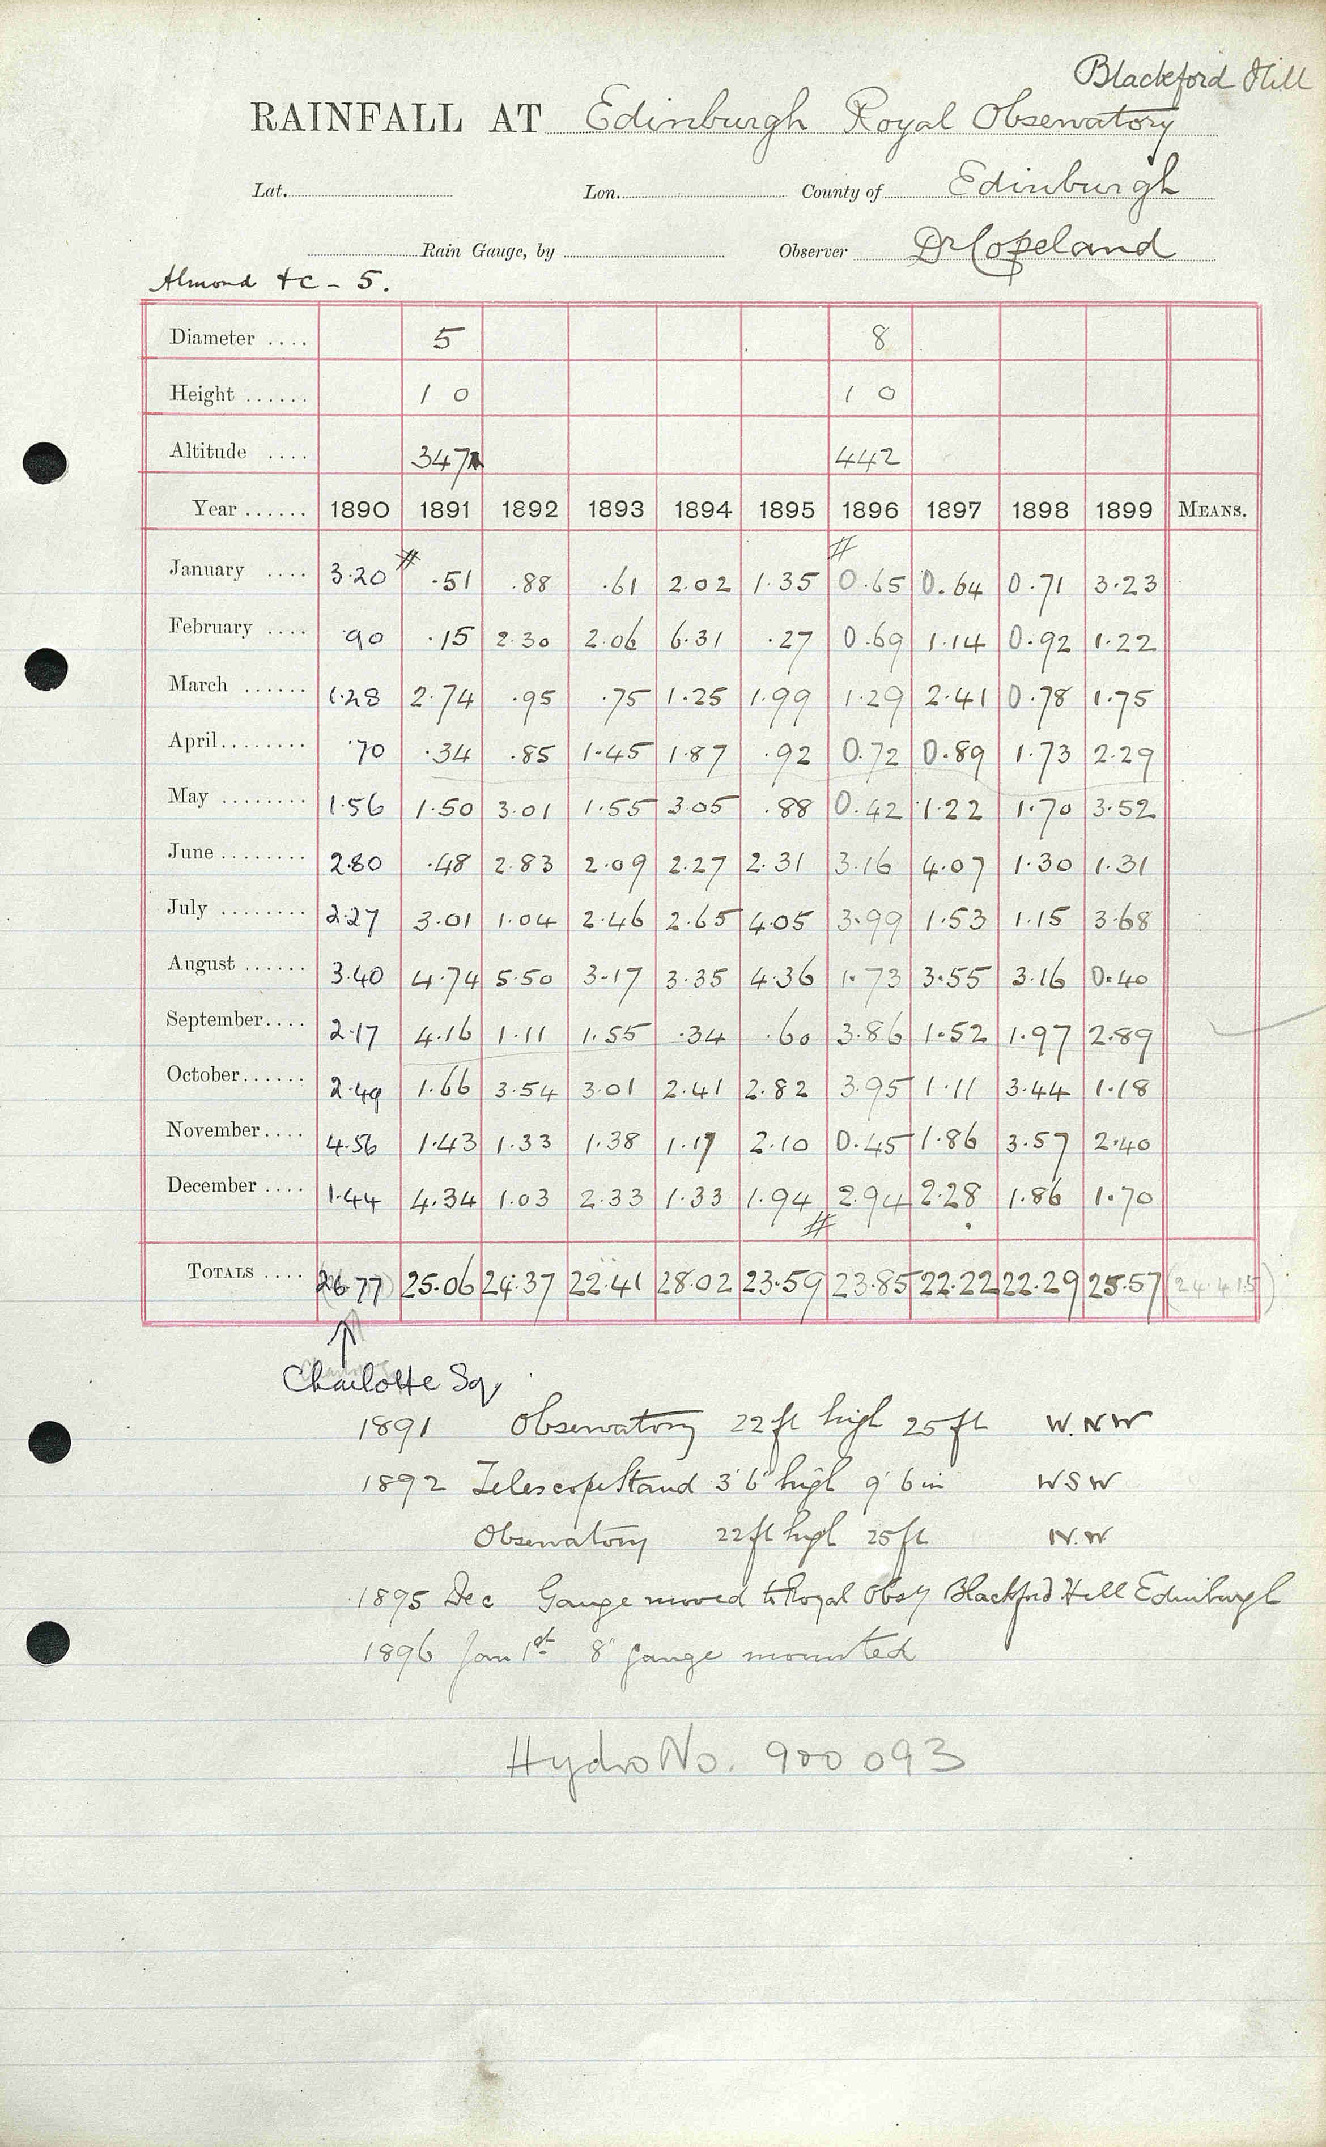 Blackford Hill
RAINFALL AT Edinburgh Royal Observatory
Lat. Lon. County of Edinburgh
Rain Gauge, by Observer Dr Copeland
Almond &c - 5.
Diameter .... 5 8
Height ...... 1 0 1 0
Altitude .... 347 442
Year ...... 1890 1891 1892 1893 1894 1895 1896 1897 1898 1899 MEANS.
January .... 3.20 # .51 .88 .61 2.02 1.35 # 0.65 0.64 0.71 3.23
February .... .90 .15 2.30 2.06 6.31 .27 0.69 1.14 0.92 1.22
March ...... 1.28 2.74 .95 .75 1.25 1.99 1.29 2.41 0.78 1.75
April........ .70 .34 .85 1.45 1.87 .92 0.72 0.89 1.73 2.29
May ........ 1.56 1.50 3.01 1.55 3.05 .88 0.42 1.22 1.70 3.52
June ........ 2.80 .48 2.83 2.09 2.27 2.31 3.16 4.07 1.30 1.31
July ........ 2.27 3.01 1.04 2.46 2.65 4.05 3.99 1.53 1.15 3.68
August ...... 3.40 4.74 5.50 3.17 3.35 4.36 1.73 3.55 3.16 0.40
September.... 2.17 4.16 1.11 1.55 .34 .60 3.86 1.52 1.97 2.89
October...... 2.49 1.66 3.54 3.01 2.41 2.82 3.95 1.11 3.44 1.18
November.... 4.56 1.43 1.33 1.38 1.17 2.10 0.45 1.86 3.57 2.40
December .... 1.44 4.34 1.03 2.33 1.33 1.94 # 2.94 2.28 1.86 1.70
TOTALS .... (26.77) 25.06 24.37 22.41 28.02 23.59 23.85 22.22 22.29 25.57 (24.415)
↑
Charlotte Sq,
1891 Observatory 22ft high 25ft W.NW
1892 Telescope Stand 3'6" high 9' 6in WSW
Observatory 22ft high 25ft N.W
1895 Dec Gauge moved to Royal Obsy Blackford Hill Edinburgh
1896 Jan 1st 8" gauge mounted
Hydro No. 900 093